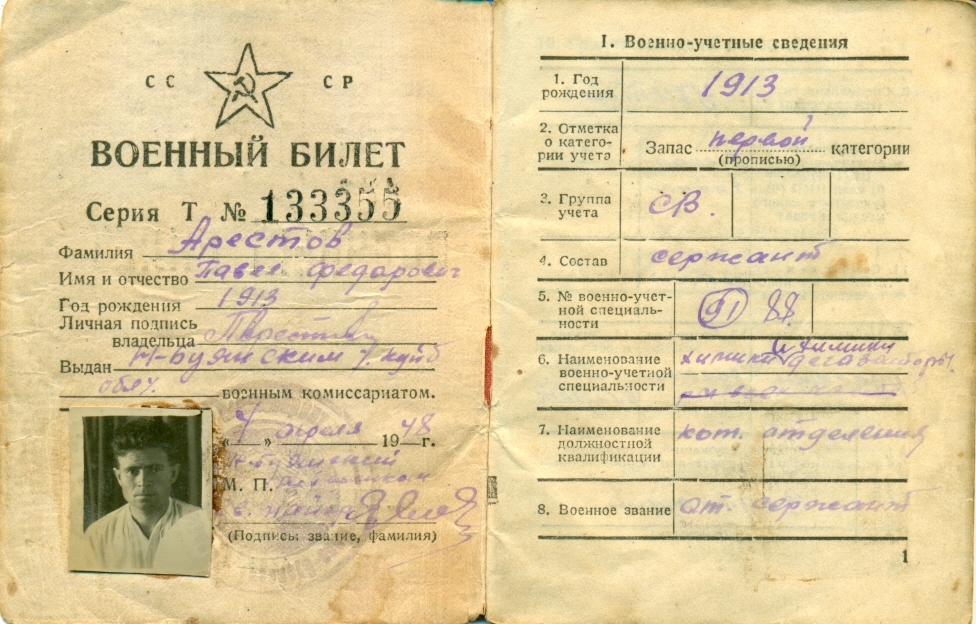 СС СР
ВОЕННЫЙ БИЛЕТ
Серия Т № 133355
Фамилия Арестов
Имя и отчество Павел Федарович
Год рождения 1913
Личная подпись
владельца
Выдан Н-Буянским Куйб
обл. военным комиссариатом.
« 7 » апреля 1948 г.
М. П.
(Подпись, звание, фамилия)
I. Военно-учетные сведения
1. Год
рождения 1913
2. Отметка
о катего-
рии учета Запас первой категории
(прописью)
3. Группа
учета СВ.
4. Состав сержант
5. № военно-учет-
ной специаль-
ности 91 88
6. Наименование
военно-учетной
специальности химики
7. Наименование
должностной
квалификации ком. отделения
8. Военное звание ст. сержант
1